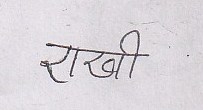 राखी